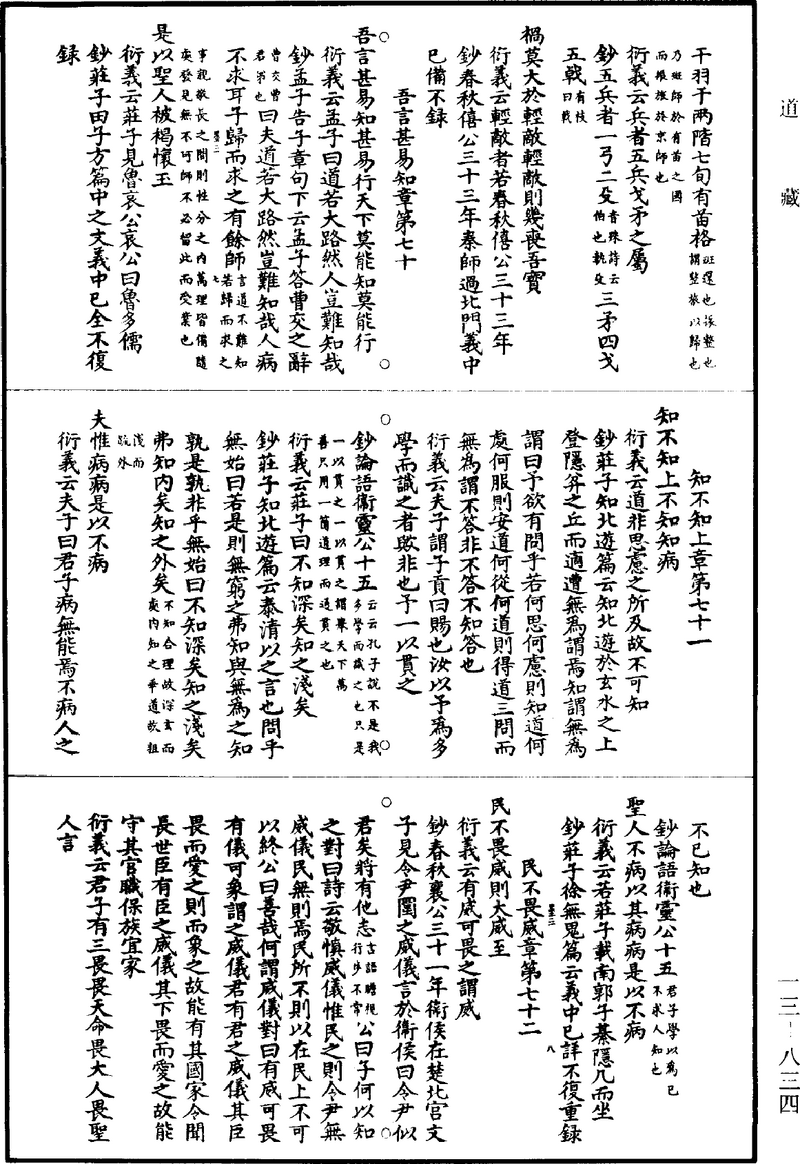 道藏
一三-八三四
干羽于兩階七旬有苗格班還也振整也謂整旅以歸也
乃班師於有苗之國
而振旅於京師也
衍義云兵者五兵戈矛之屬
鈔五兵者一弓二殳音殊詩云伯也執殳三矛四戈
五戟有枝曰戟
禍莫大於輕敵輕敵則幾喪吾寶
衍義云輕敵者若春秋僖公三十三年
鈔春秋僖公三十三年秦師過北門義中
已備不録
吾言甚易知章第七十
吾言甚易知甚易行天下莫能知莫能行
衍義云孟子曰道若大路然人豈難知哉
鈔孟子告子章句下云孟子答曹交之辭
曹交曹君弟也曰夫道若大路然豈難知哉人病
不求耳子歸而求之有餘師言道不難知若歸而求之
事親敬長之間則性分之内萬理皆備隨
處發見無不可師不必留此而受業也
是以聖人被褐懷玉
衍義云莊子見魯哀公哀公曰魯多儒
鈔莊子田子方篇中之文義中已全不復
録
知不知上章第七十一
知不知上不知知病
衍義云道非思慮之所及故不可知
鈔莊子知北遊篇云知北遊於玄水之上
登隱弅之丘而適遭無為謂焉知謂無為
謂曰予欲有問乎若何思何慮則知道何
處何服則安道何從何道則得道三問而
無為謂不答非不答不知答也
衍義云夫子謂子貢曰賜也汝以予為多
學而識之者歟非也予一以貫之
鈔論語衛靈公十五云云孔子説不是我多學而識之也只是
一以貫之一以貫之謂舉天下萬
善只用一箇道理而通貫之也
衍義云莊子曰不知深矣知之淺矣
鈔莊子知北遊篇云泰清以之言也問乎
無始曰若是則無窮之弗知與無為之知
孰是孰非乎無始曰不知深矣知之淺矣
弗知内矣知之外矣不知合理故深玄而處内知之乖道故粗
淺而
踈外
夫惟病病是以不病
衍義云夫子曰君子病無能焉不病人之
不已知也
鈔論語衛靈公十五君子學以為己不求人知也
聖人不病以其病病是以不病
衍義云若莊子載南郭子綦隱几而坐
鈔莊子徐無鬼篇云義中已詳不復重録
民不畏威章第七十二
民不畏威則大威至
衍義云有威可畏之謂威
鈔春秋襄公三十一年衛侯在楚北宫文
子見令尹圍之威儀言於衛侯曰令尹似
君矣將有他志言語瞻視行步不常公曰子何以知
之對曰詩云敬慎威儀惟民之則令尹無
威儀民無則焉民所不則以在民上不可
以終公曰善哉何謂威儀對曰有威可畏
有儀可象謂之威儀君有君之威儀其臣
畏而愛之則而象之故能有其國家令聞
長世臣有臣之威儀其下畏而愛之故能
守其官職保族宜家
衍義云君子有三畏畏天命畏大人畏聖
人言